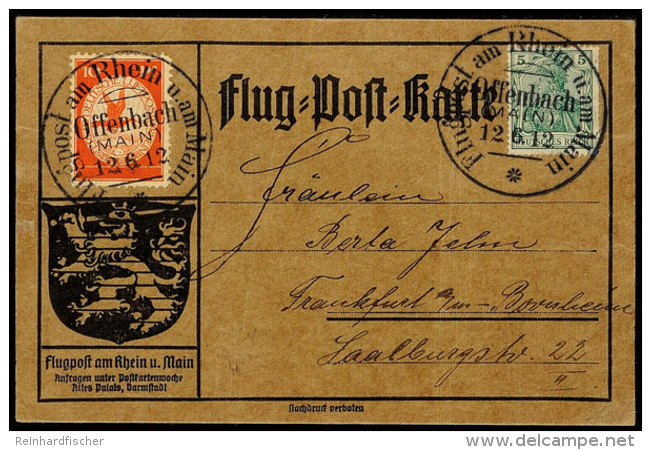 Flug=Post=Karte
10
5
5
Flugpost am Rhein u. am Main
Offenbach
(MAIN)
12.6.12
Flugpost am Rhein u. am Main
Offenbach
(MAIN)
12.6.12
*
Fräulein
Berta Jelm
Frankfurt a/m - Bornheim
Saalburgstr. 22
II
Flugpost am Rhein u. Main
Anfragen unter Postkartenwoche
Altes Palais, Darmstadt
Nachdruck verboten
Reinhardfischer
delcampe.net